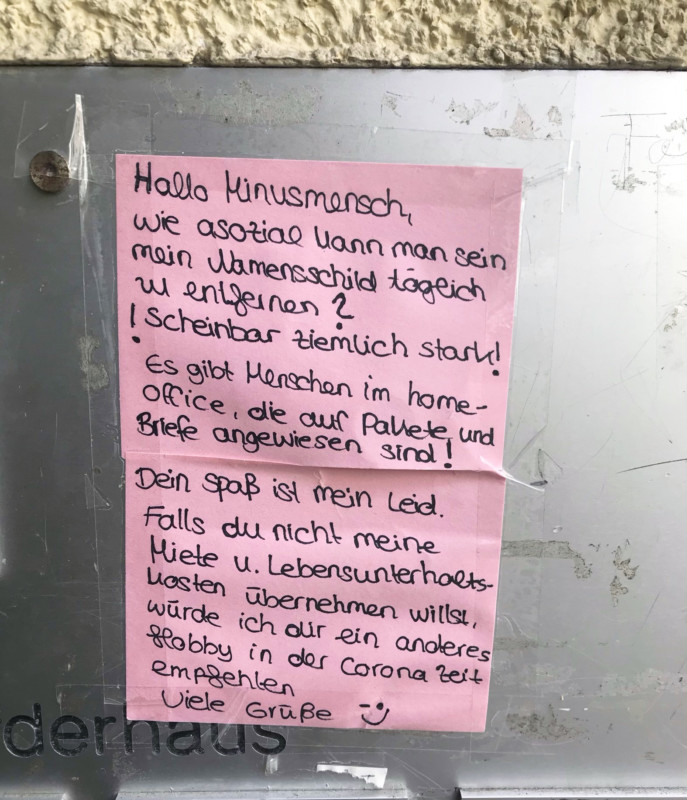 Hallo Minusmensch,
wie asozial kann man sein
mein Namensschild tägeich
zu entfernen?
! Scheinbar ziemlich stark!
Es gibt Menschen im home-
Office, die auf Pakete und
Briefe angewiesen sind!
Dein Spaß ist mein Leid.
Falls du nicht meine
Miete u. Lebensunterhalts-
kosten übernehmen willst,
würde ich dir ein anderes
Hobby in der Corona Zeit
empfehlen
Viele Grüße
derhaus